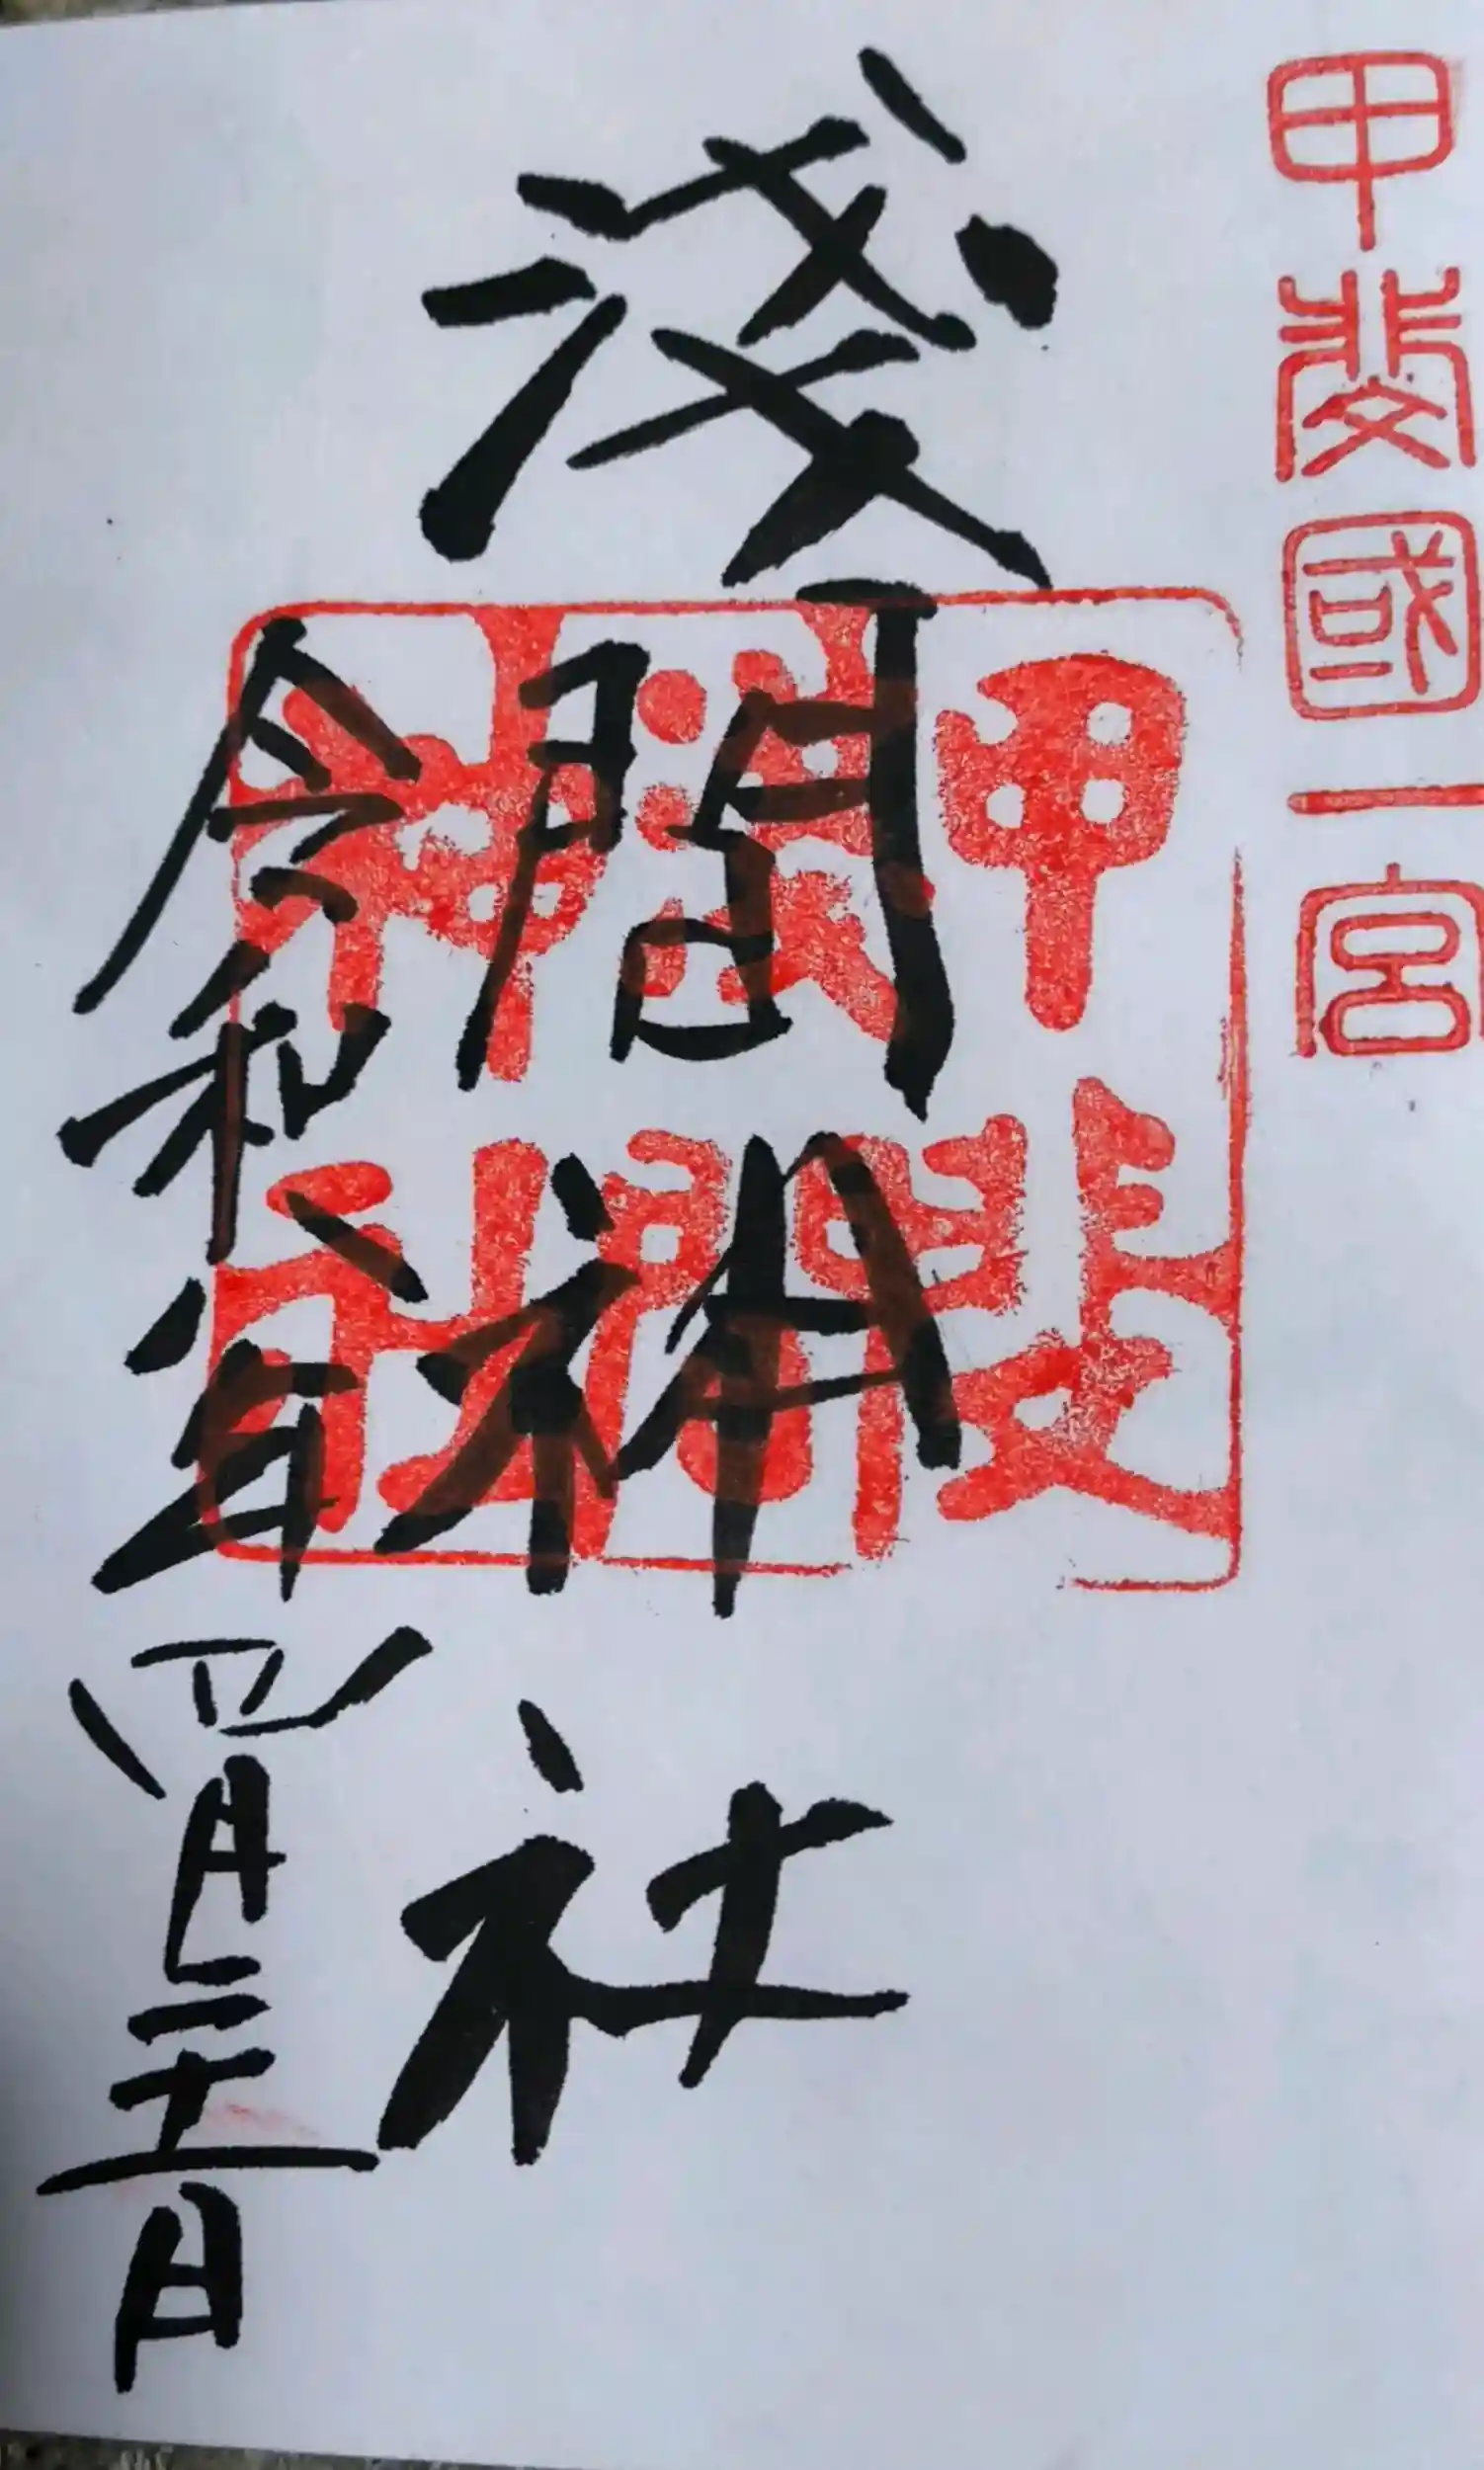 甲斐國一宮
淺間神社
甲斐
淺間
神社
令和八年四月二十一日